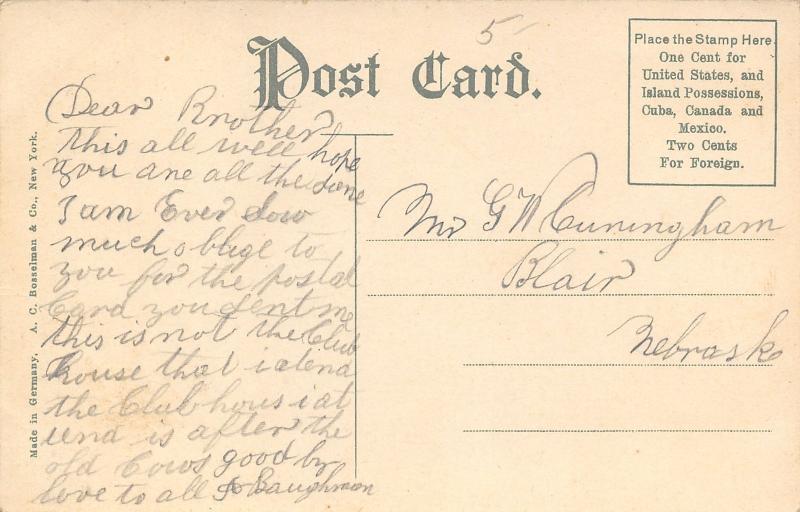 5
Post Card.
Place the Stamp Here.
One Cent for
United States, and
Island Possessions,
Cuba, Canada and
Mexico.
Two Cents
For Foreign.
Made in Germany. A. C. Bosselman & Co., New York.
Dear Brother
this all well hope
you are all the same
I am Ever Sow
much oblige to
you for the postal
Card you sent me
this is not the Club
house that i atend
the Club hous i at
tend is after the
old Cows good by
love to all Baughman
Mr G W Cuningham
Blair
Nebrask